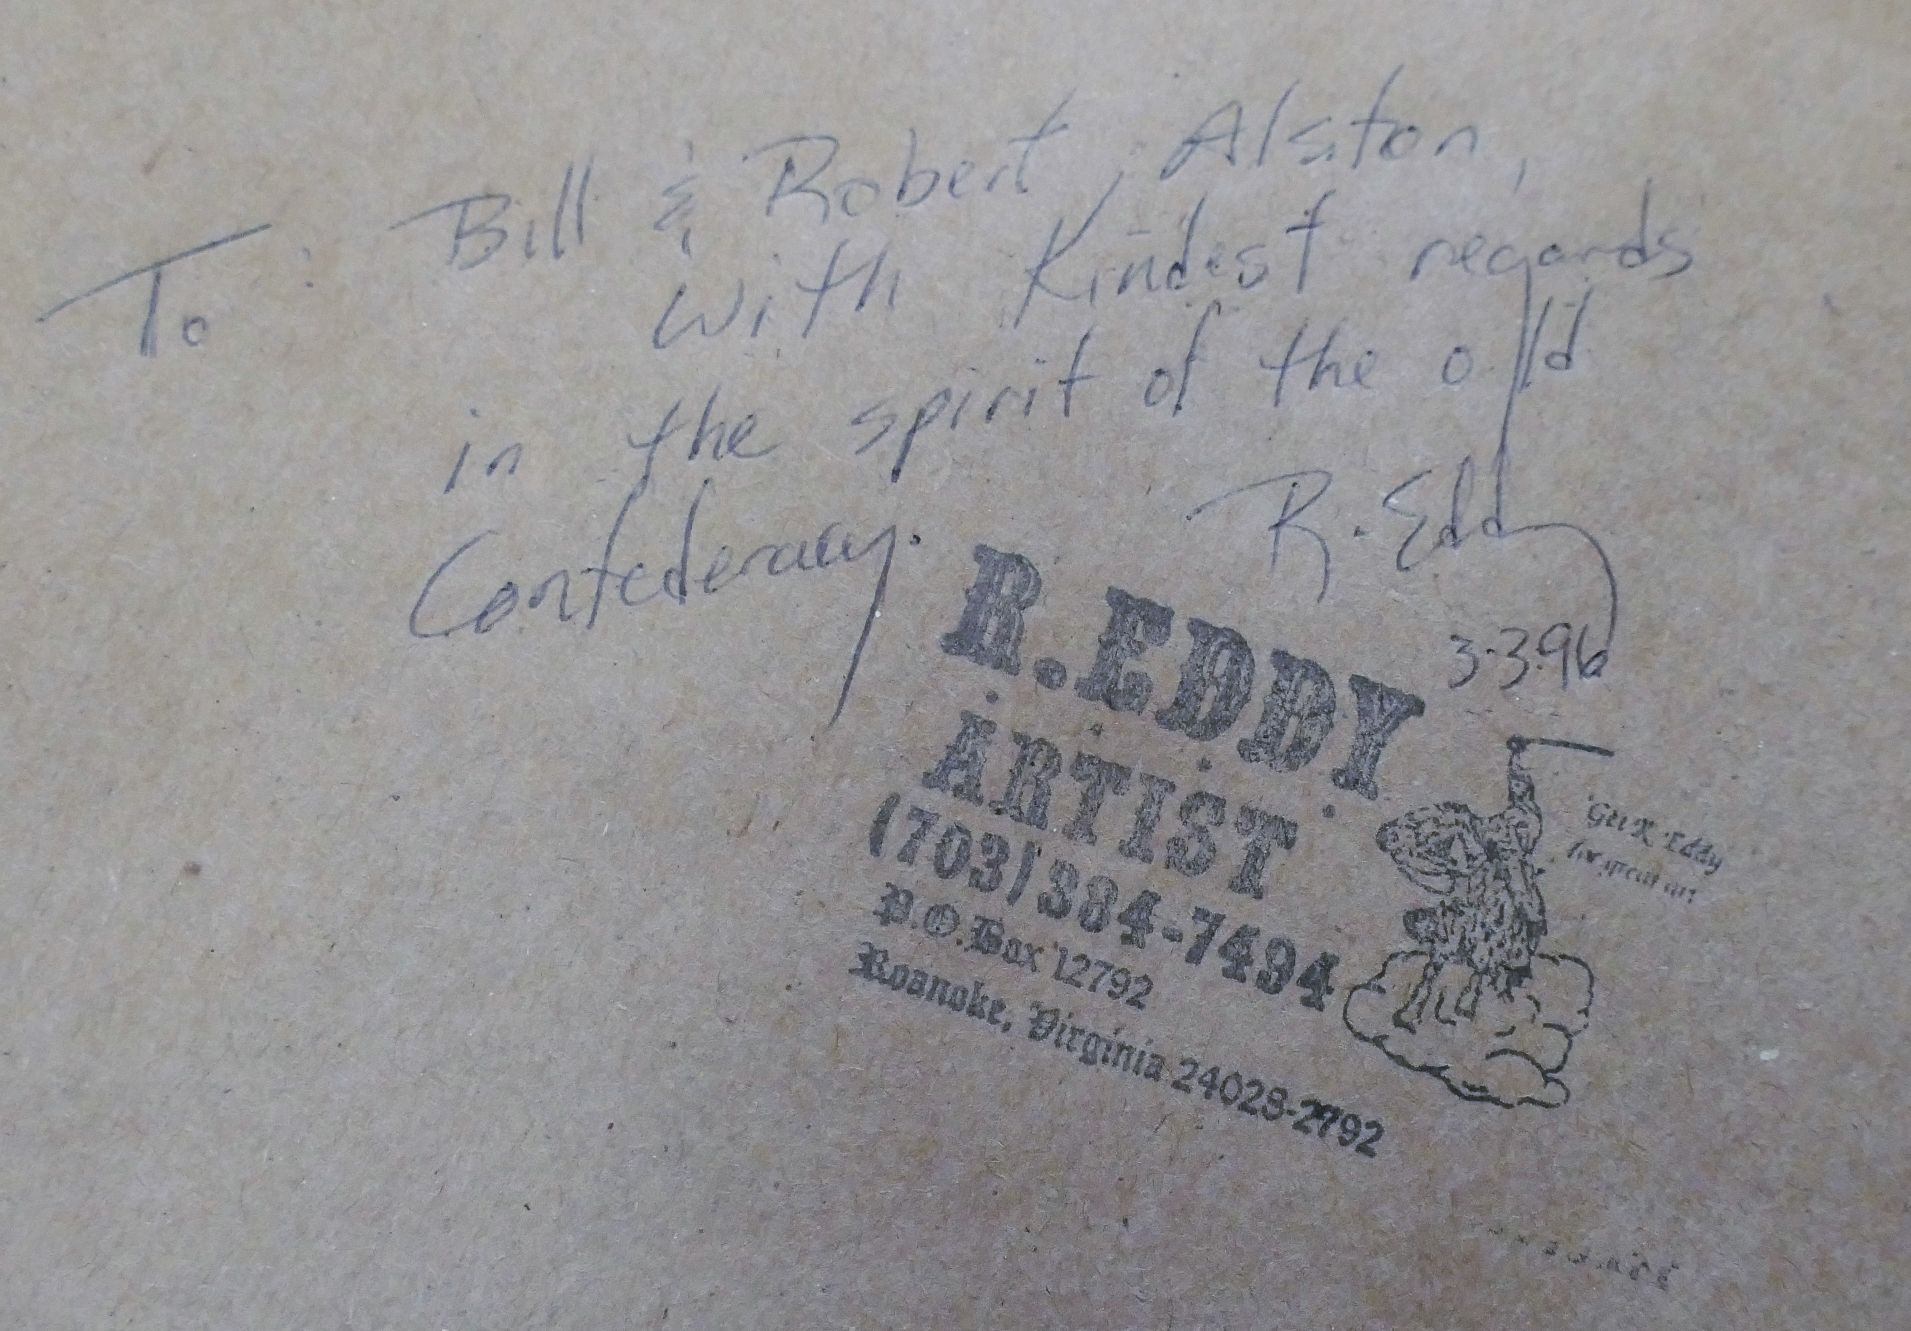 To: Bill & Robert, Alston,
with Kindest regards
in the spirit of the old
Confederacy.
R. Eddy
3.3.96
R. EDDY
ARTIST
(703) 384-7494
P.O. Box 12792
Roanoke, Virginia 24028-2792
Get R. Eddy
for great art